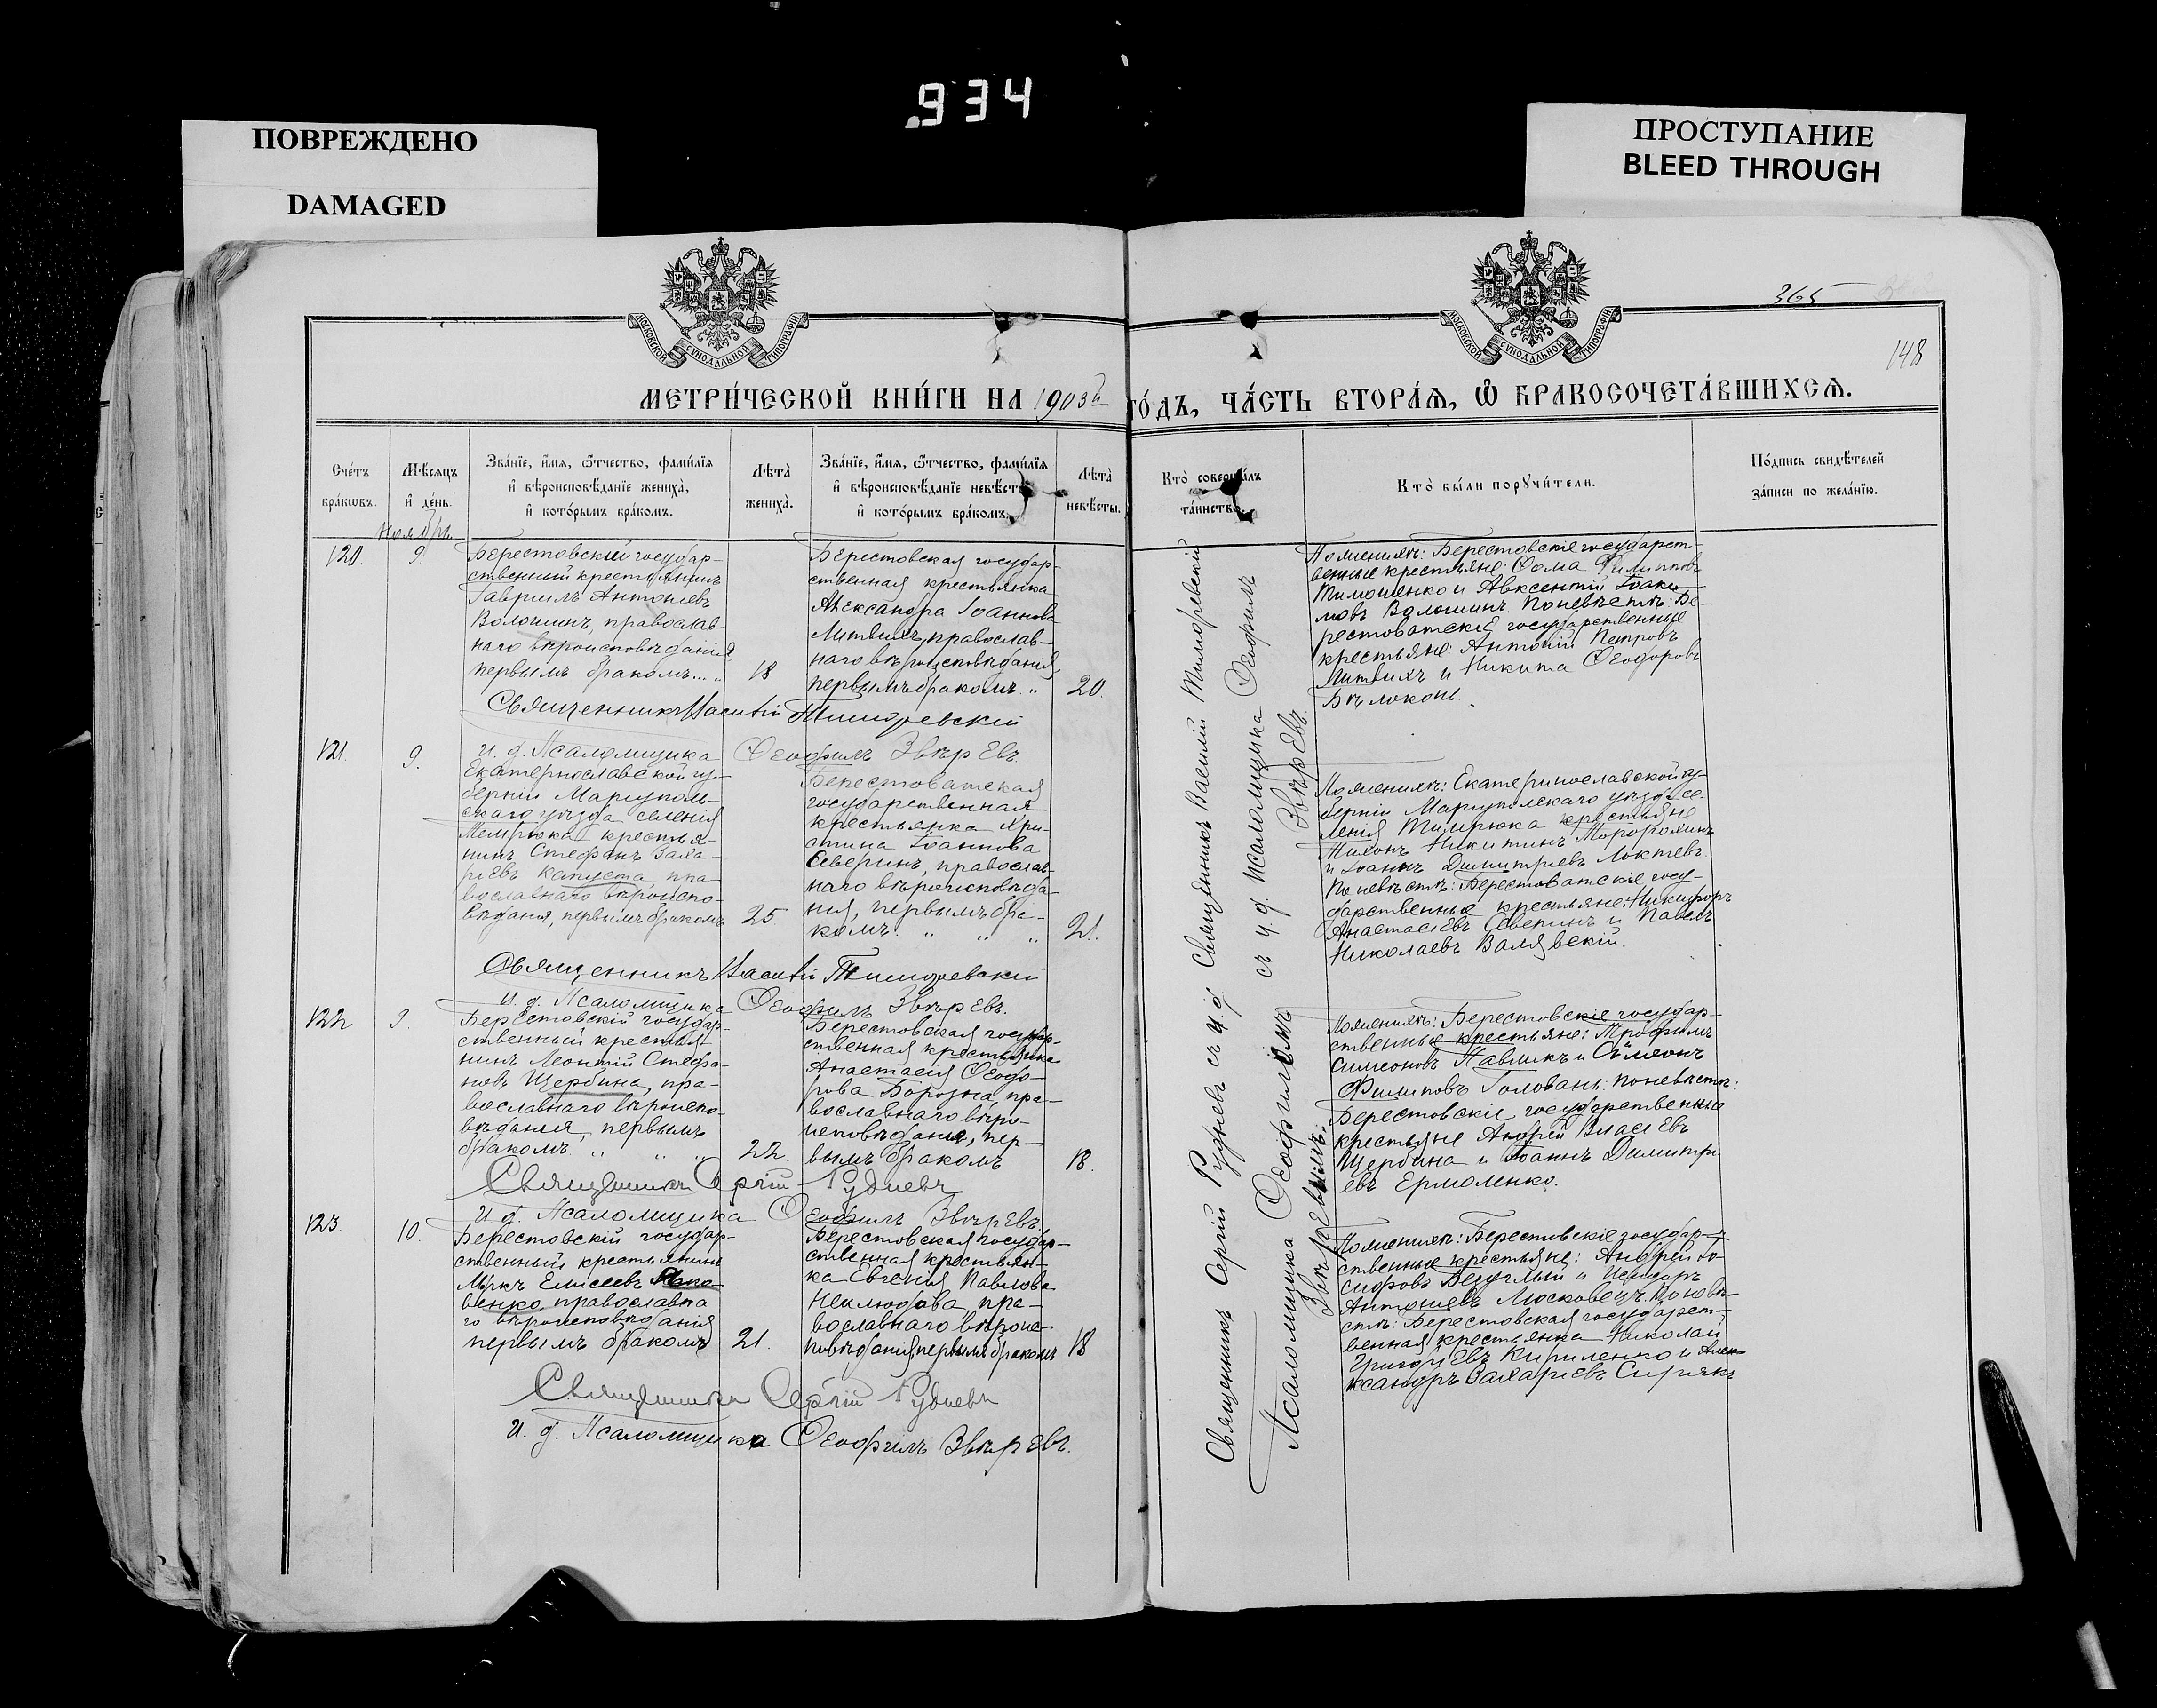 934
ПОВРЕЖДЕНО
DAMAGED
ПРОСТУПАНИЕ
BLEED THROUGH
МОСКОВСКОЙ СѴНОДАЛЬНОЙ ТИПОГРАФІИ
МОСКОВСКОЙ СѴНОДАЛЬНОЙ ТИПОГРАФІИ
365
148
МЕТРИ́ЧЕСКОЙ КНИ́ГИ НА 1903й ГО́ДЪ, ЧА́СТЬ ВТОРА́Я, Ѿ БРАКОСОЧЕТА́ВШИХСЯ.
Сче́тъ
бра́кωвъ.
Мѣ́сяцъ
и҆ де́нь.
Зва́нїе, и҆́мя, ѻ҆́тчество, фамилїя
и҆ вѣроисповѣ́данїе жениха̀,
и҆ кото́рымъ бра́комъ.
Лѣ́та
жениха̀.
Зва́нїе, и҆́мя, ѻ҆́тчество, фамилїя
и҆ вѣроисповѣ́данїе невѣ́сты
и҆ кото́рымъ бра́комъ.
Лѣ́та
невѣ́сты.
Кто̀ соверша́лъ
та́инство.
Кто̀ бы́ли порꙋчи́тели.
По́дпись свидѣ́телей
за́писи по жела́нїю.
Ноябрь.
120.
9.
Берестовскій государ-
ственный крестьянинъ
Гавріилъ Антоніевъ
Волошинъ, православ-
наго вѣроисповѣданія
первымъ бракомъ...
18
Берестовская государ-
ственная крестьянка
Александра Іоаннова
Литвихъ, православ-
наго вѣроисповѣданія,
первымъ бракомъ. "
20.
Поженихѣ: Берестовскіе государст-
венные крестьяне: Ѳома Филипповъ
Тимошенко и Авксентій Іоаки-
мовъ Волошинъ. Поневѣстѣ: Бе-
рестоватскіе государственные
крестьяне: Антоній Петровъ
Литвихъ и Никита Ѳеодоровъ
Бѣлоконь.
Священникъ Василій Тиморевскій
И. д. Псаломщика Ѳеофилъ Звѣревъ.
121.
9.
Екатеринославской гу-
берніи Маріуполь-
скаго уѣзда селенія
Темрюка крестья-
нинъ Стефанъ Заха-
ріевъ Капуста пра-
вославнаго вѣроиспо-
вѣданія, первымъ бракомъ
25.
Берестоватская
государственная
крестьянка Хри-
стина Іоаннова
Северинъ, православ-
наго вѣроисповѣда-
нія, первымъ бра-
комъ. " " "
21.
Поженихѣ: Екатеринославской гу-
берніи Маріупольскаго уѣзда се-
ленія Темрюка крестьяне
Тихонъ Никитинъ
и Іоаннъ Димитріевъ Локтевъ.
Поневѣстѣ: Берестоватскіе госу-
дарственные крестьяне: Никифоръ
Анастасіевъ Северинъ и Павелъ
Николаевъ Валявскій.
Священникъ Василій Тиморевскій
И. д. Псаломщика Ѳеофилъ Звѣревъ.
122
9.
Берестовскій государ-
ственный крестья-
нинъ Леонтій Стефа-
новъ Щербина, пра-
вославнаго вѣроиспо-
вѣданія, первымъ
бракомъ. " " "
22.
Берестовская государ-
ственная крестьянка
Анастасія Ѳеодо-
рова Борозна, пра-
вославнаго вѣро-
исповѣданія, пер-
вымъ бракомъ
18.
Поженихѣ: Берестовскіе государ-
ственные крестьяне: Трофимъ
Симеоновъ Павликъ и Симеонъ
Филиповъ Головань: поневѣстѣ:
Берестовскіе государственные
крестьяне Андрей Власіевъ
Щербина и Іоаннъ Димитрі-
евъ Ермоленко.
Священникъ Сергій Рудневъ
И. д. Псаломщика Ѳеофилъ Звѣревъ.
123.
10.
Берестовскій государ-
ственный крестьянинъ
Маркъ Елисеевъ Яко-
венко, православна
го вѣроисповѣданія
первымъ бракомъ
21.
Берестовская государ-
ственная крестьян-
ка Евгенія Павлова
Неклюдова, пра-
вославнаго вѣроис-
повѣданія, первымъ бракомъ
18
Поженихѣ: Берестовскіе государ-
ственные крестьяне: Андрей Іо-
сифовъ Безуглый и
Антоніевъ Московецъ. Поневѣ-
стѣ: Берестовская государст-
венная крестьянка Николай
Григорьевъ Кириленко и Алек-
ксандръ Захаріевъ Сиряк
Священникъ Сергій Рудневъ
И. д. Псаломщика Ѳеофилъ Звѣревъ.
Священникъ Василій Тиморевскій
съ и. д. Псаломщика Ѳеофилъ
Звѣревъ
Священникъ Сергій Рудневъ съ и. д.
Псаломщика Ѳеофиломъ
Звѣревымъ.